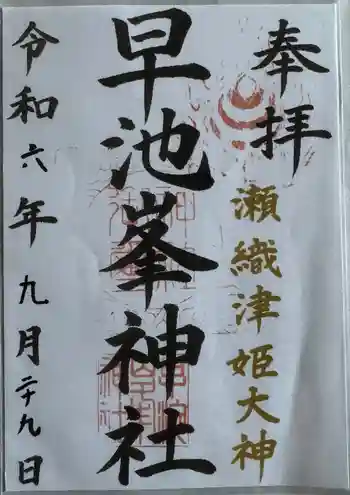 奉拝
瀬織津姫大神
早池峯神社
令和六年九月二十九日